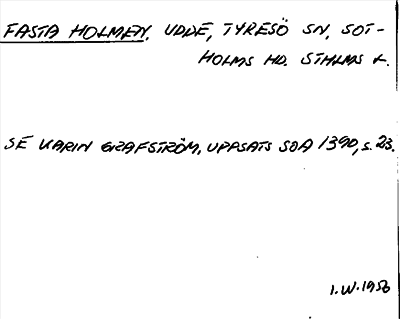 FASTA HOLMEN, UDDE, TYRESÖ SN, SOT-
HOLMS HD. STHLMS L.
SE KARIN GRAFSTRÖM, UPPSATS SOA 1390, s. 23.
I.W. 1956